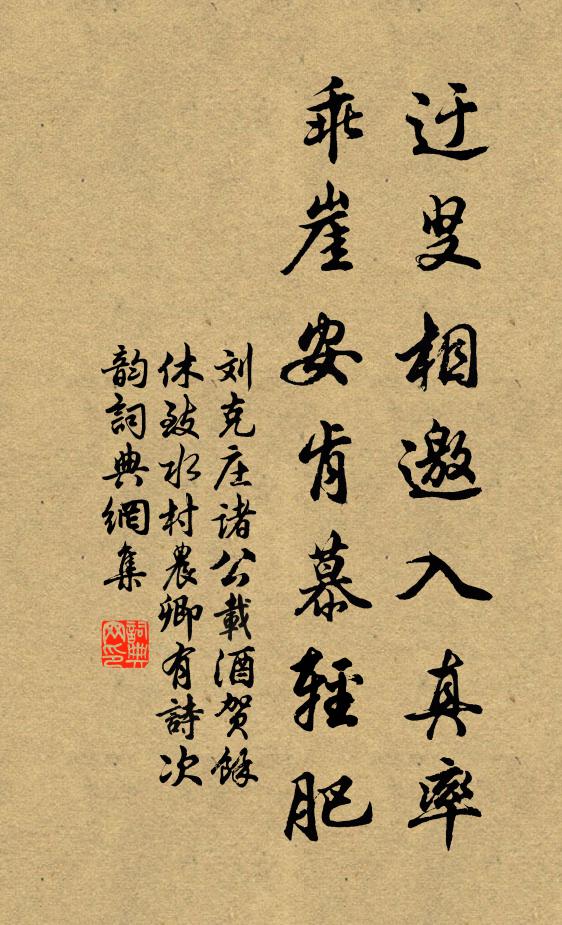 迂叟相邀入真率
乖崖安肯慕輕肥
刘克庄諸公載酒贺餘
休致水村農卿有詩次
韵詞典網集
詞典
网印